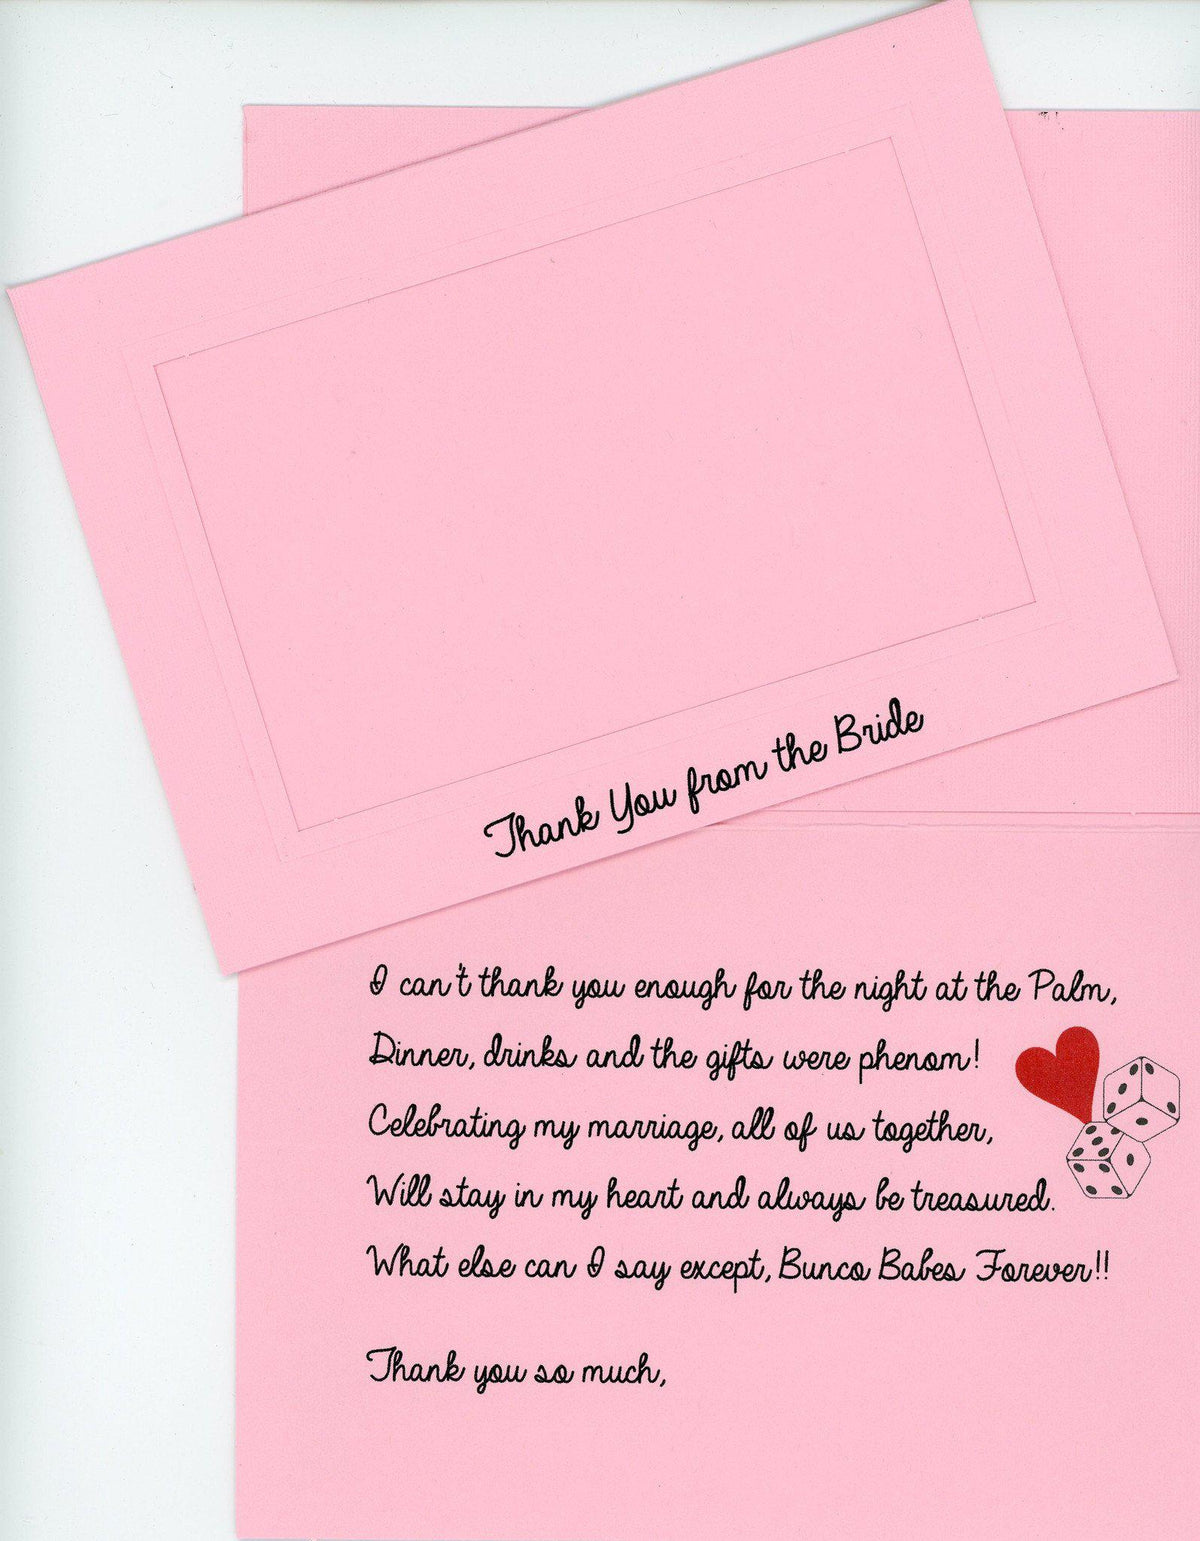 Thank You from the Bride
I can't thank you enough for the night at the Palm,
Dinner, drinks and the gifts were phenom!
Celebrating my marriage, all of us together,
Will stay in my heart and always be treasured.
What else can I say except, Bunco Babes Forever!!
Thank you so much,